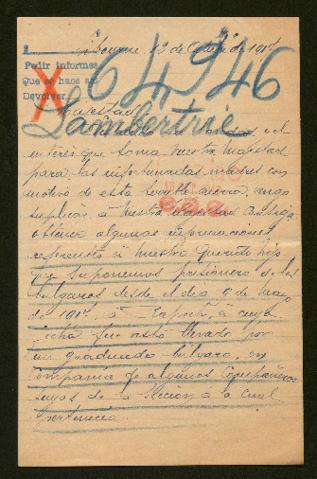 Libourne, 12 de Octubre de 1917
Pedir informes
Que se hace so
Devolver
64946
Lambertrie
Majestad
el
interés que toma Vuestra Majestad
para las infortunadas madres con
motivo de esta terrible guerra,
suplicar a Vuestra Majestad
obtener algunas informaciones
referentes a nuestro querido hijo
que suponemos prisionero de los
bulgaros desde el dia 9 de mayo
de 1917, a
fecha fue llevado por
un graduado bulgaro, en
compañia de algunos compañeros
suyos de la sección a la cual
pertenecia